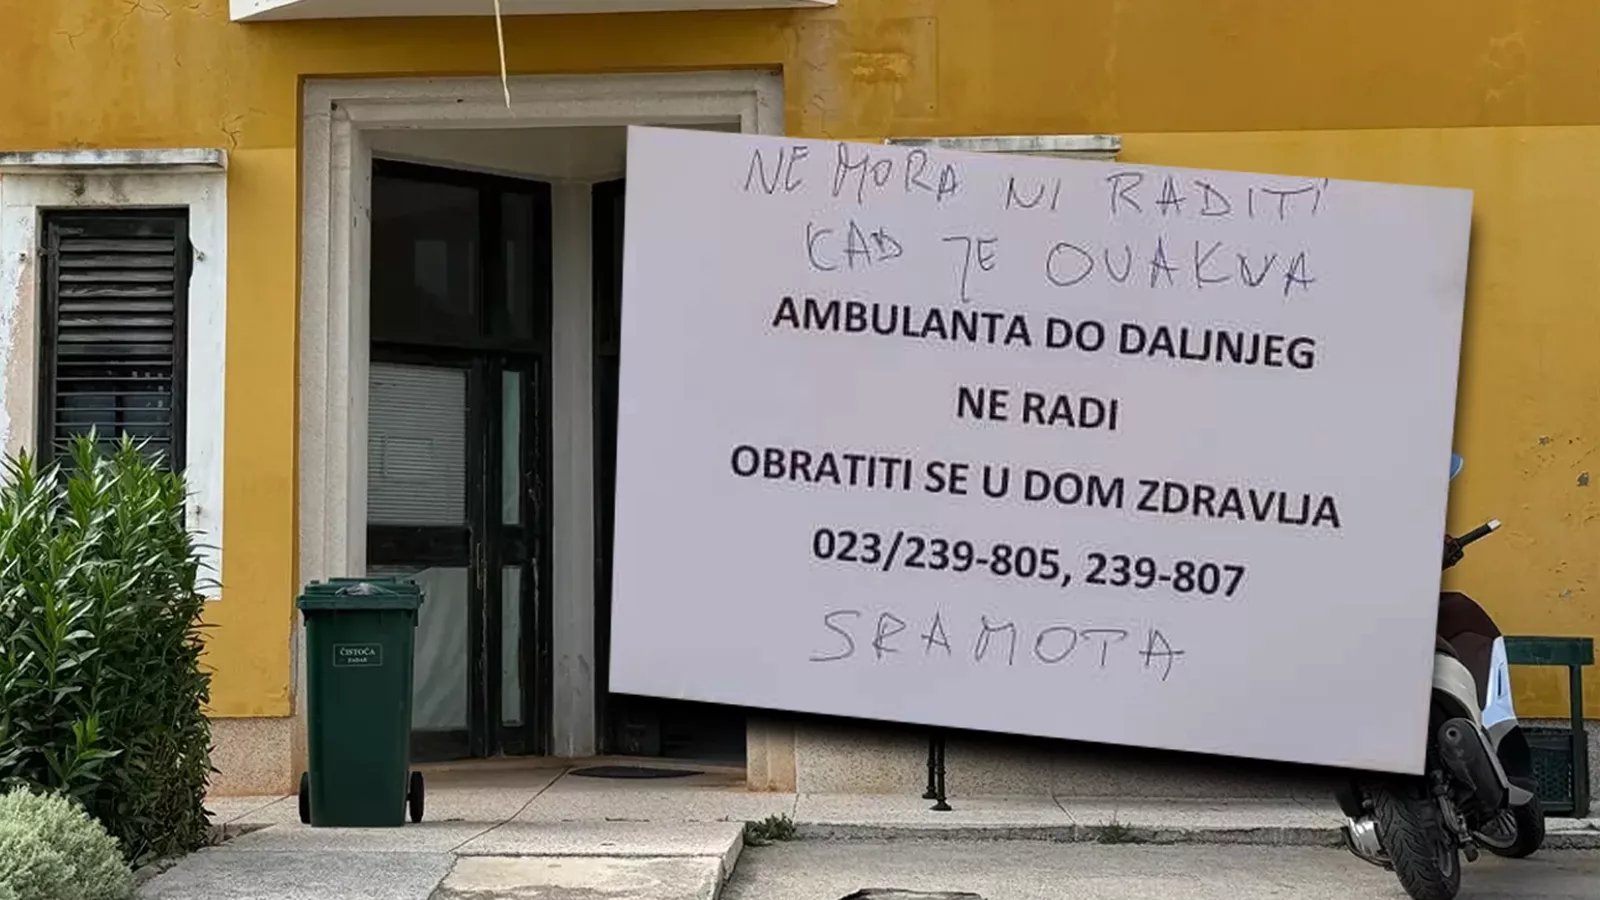 NE MORA NI RADITI
KAD JE OVAKVA
AMBULANTA DO DALJNJEG
NE RADI
OBRATITI SE U DOM ZDRAVLJA
023/239-805, 239-807
SRAMOTA
ČISTOĆA
ZADAR